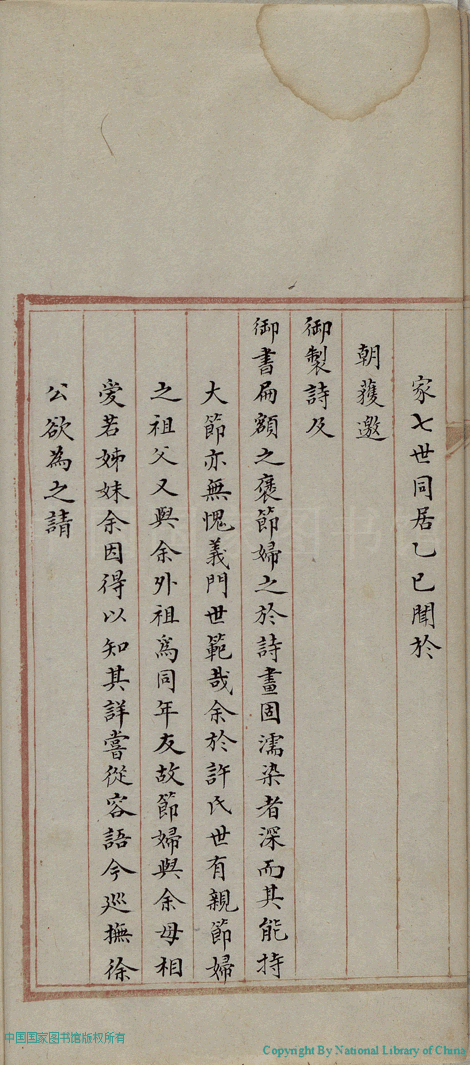 家七世同居乙巳聞於
朝蒦邀
御製詩及
御書扁額之褒節婦之於詩畫固濡染者深而其能持
大節亦無愧義門世範哉余於許氏世有親節婦
之祖父又與余外祖爲同年友故節婦與余母相
愛若姊妹余因得以知其詳嘗從容語今廵撫徐
公欲為之請
中国国家图书馆版权所有
Copyright By National Library of China